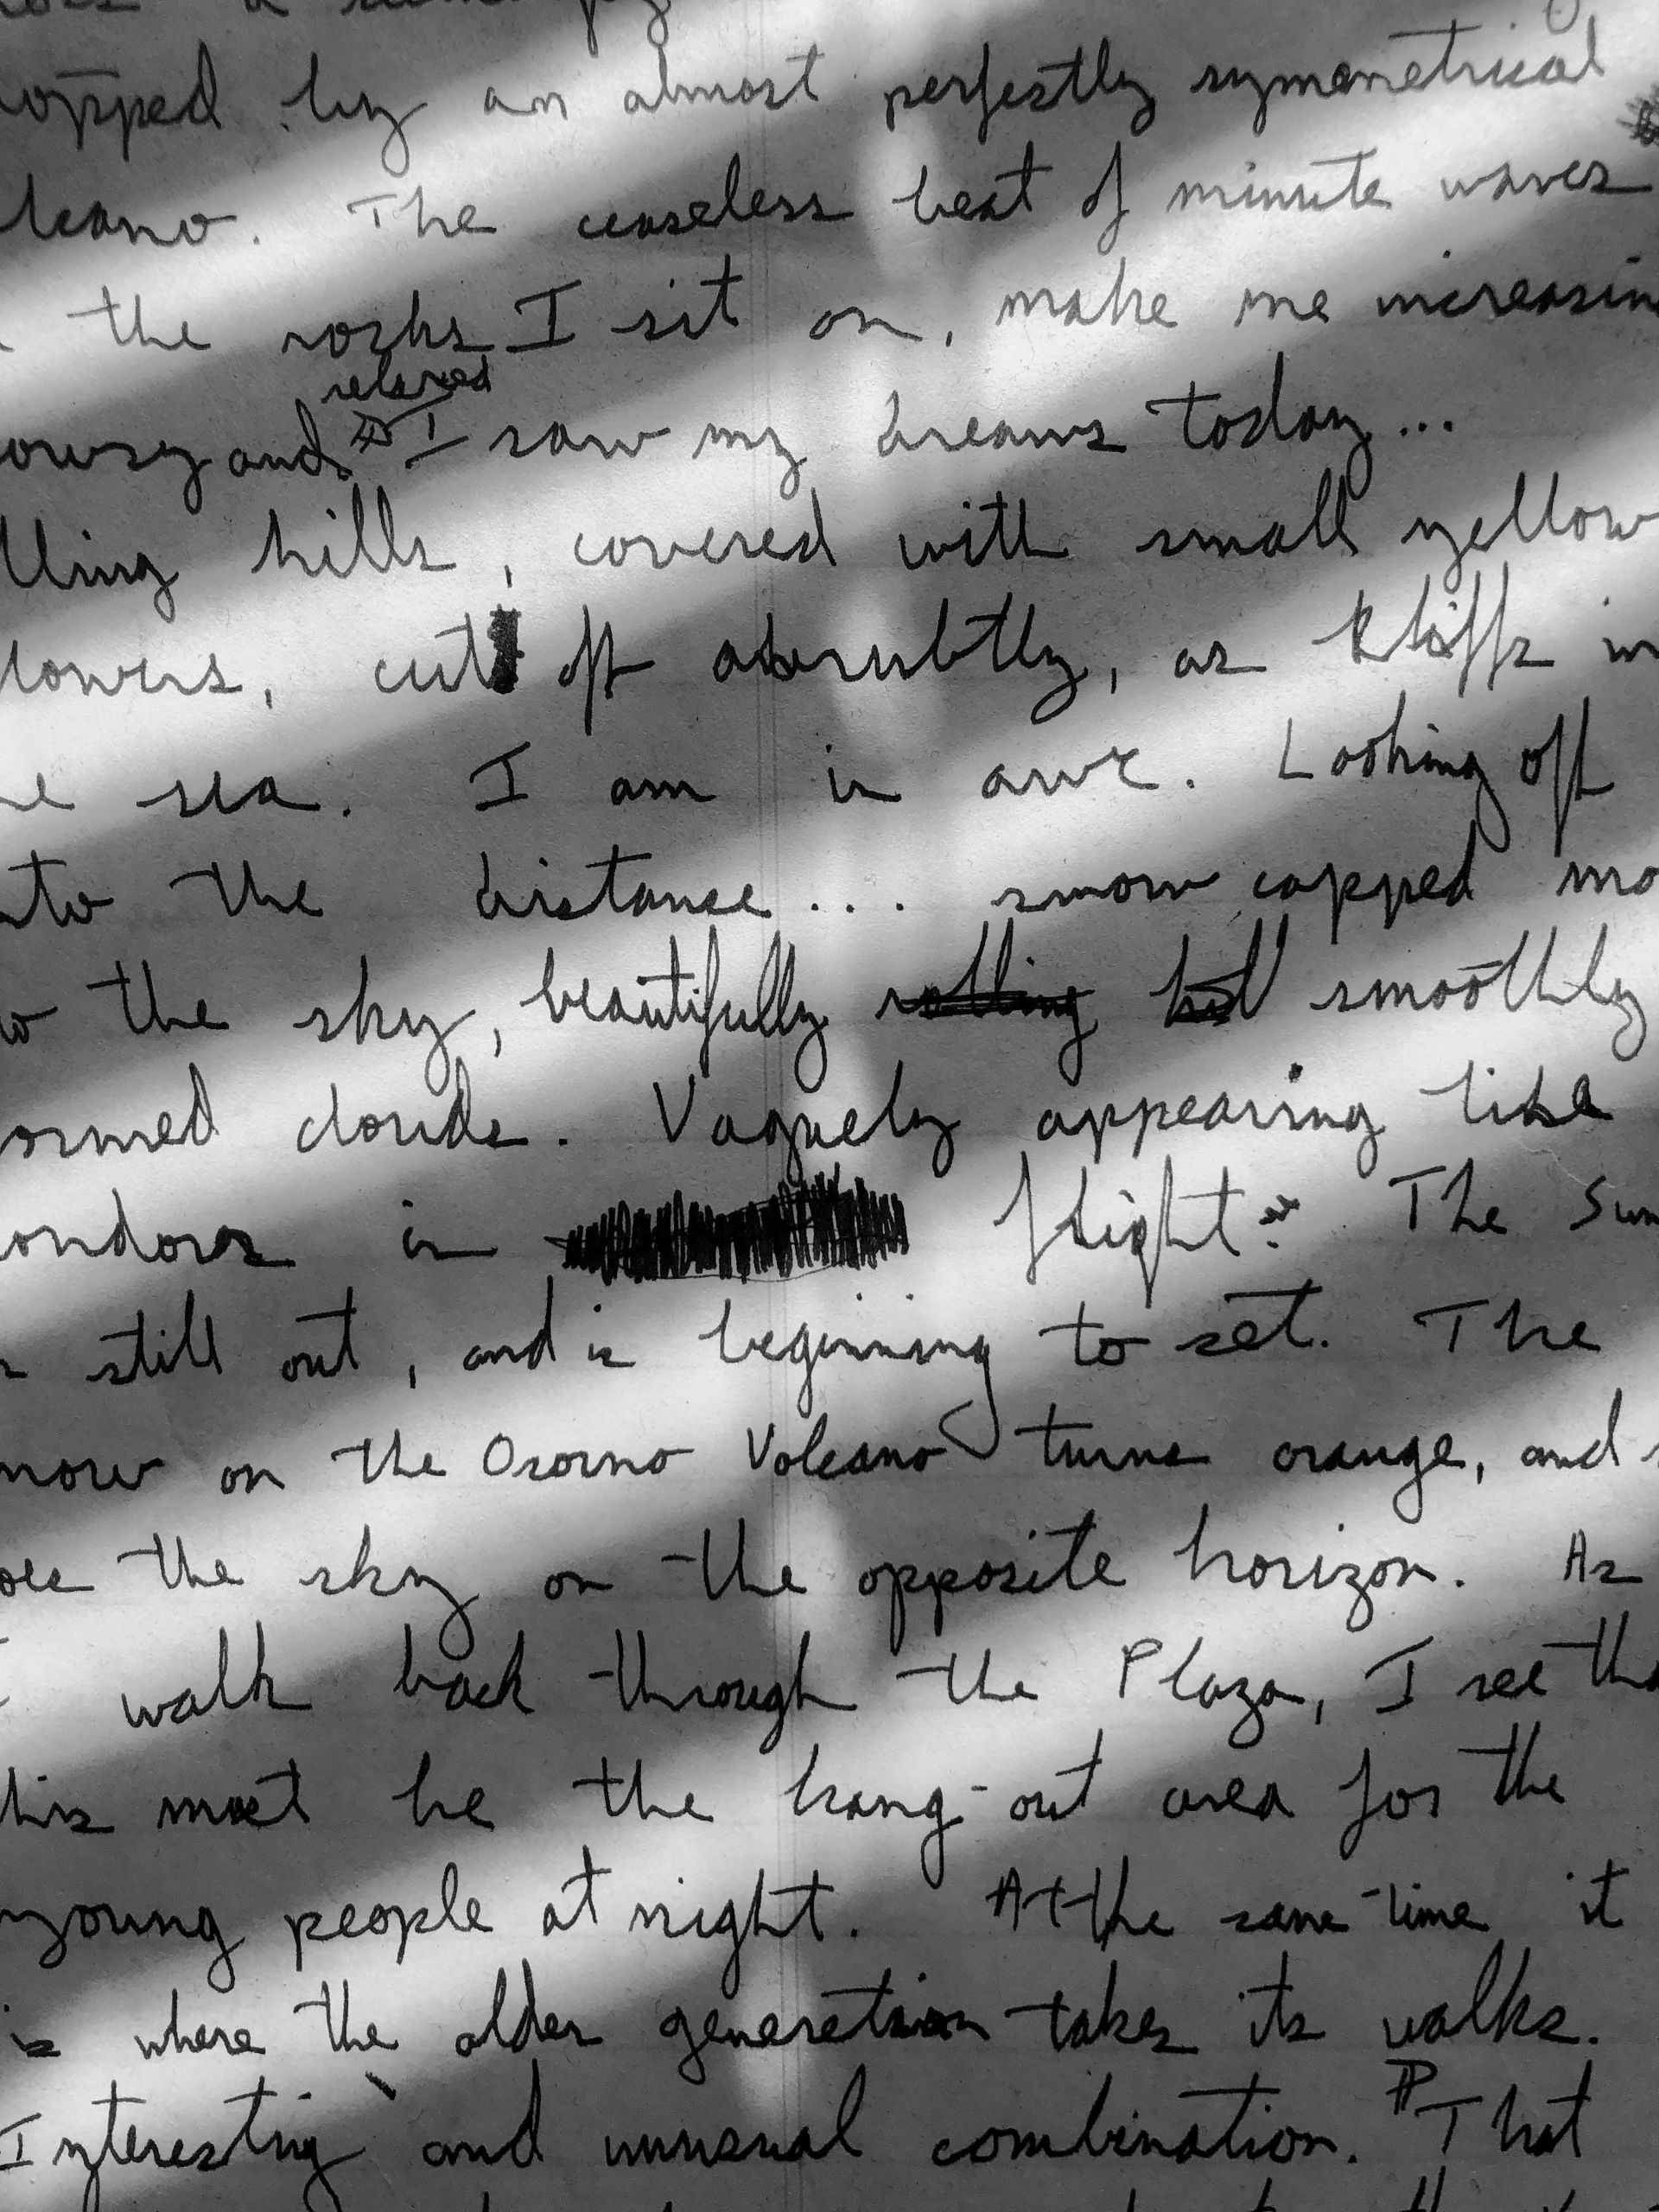 opped by an almost perfectly symmetrical
lcano. The ceaseless beat of minute waves
the rocks I sit on, make me increasin
relaxed
owsy and I saw my dreams today...
lling hills, covered with small yellow
lowers, cut off abrubtly, as kliffs in
he sea. I am in awe. Looking off
nto the distance... snow capped mo
to the sky, beautifully rolling hill smoothly
ormed clouds. Vaguely appearing like
ondors in flight. The Sun
still out, and is beginning to set. The
now on the Osorno Volcano turns orange, and
oes the sky on the opposite horizon. As
I walk back through the Plaza, I see tha
his must be the hang-out area for the
young people at night. At the same time it
is where the older generation takes its walks.
Interesting and unusual combination. ¶ That